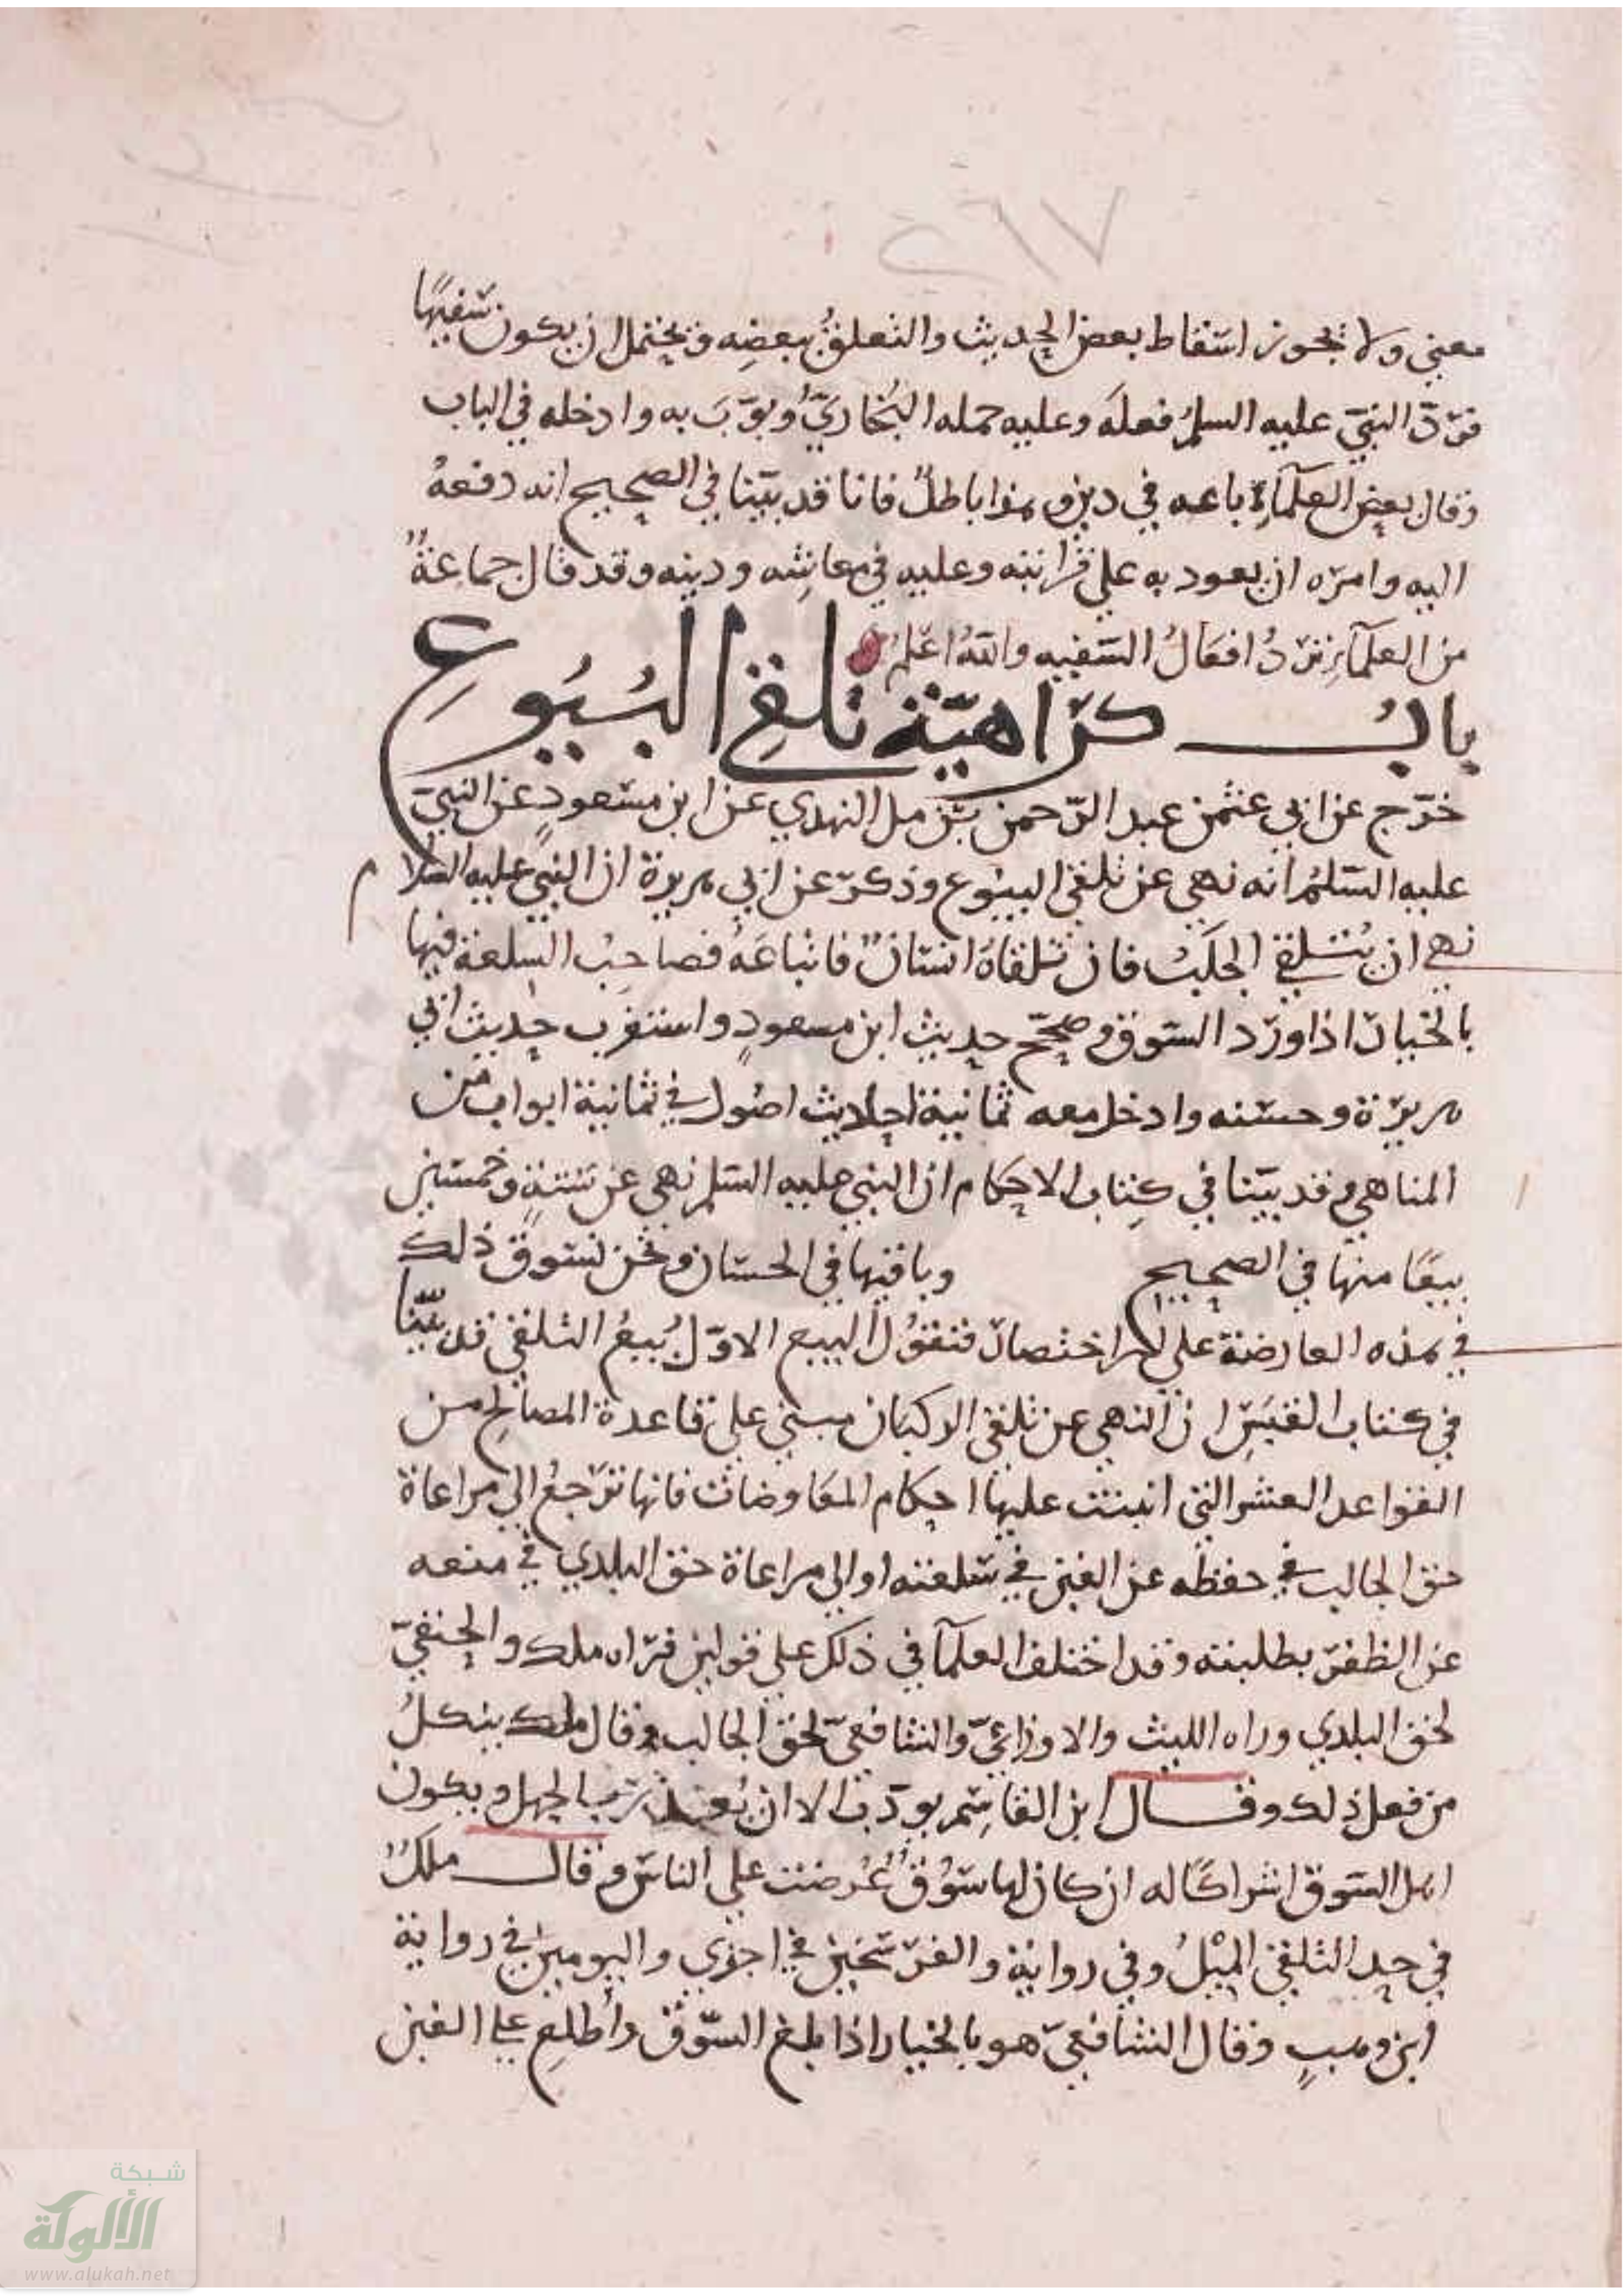 ٧٦٤
معنى ولا يجوز اسقاط بعض الحديث والتعلق ببعضه ويحتمل ان يكون سفيها
فرد النبي عليه السلم فعله وعليه حمله البخاري وبوب به وادخله في الباب
وقال بعض العلماء باعه في دين وهذا باطل فانا قد بينا في الصحيح انه دفعه
اليه وامره ان يعود به على قرابته وعليه في معايشه ودينه وقد قال جماعة
من العلماء ترد افعال السفيه والله اعلم
باب كراهية تلقي البيوع
خرج عن ابي عثمن عبد الرحمن بن مل النهدي عن ابن مسعود عن النبي
عليه السلم انه نهى عن تلقي البيوع وذكر عن ابي هريرة ان النبي عليه السلام
نهى ان يتلقى الجلب فان تلقاه انسان فابتاعه فصاحب السلعة فيها
بالخيار اذا ورد السوق وصحح حديث ابن مسعود واستغرب حديث ابي
هريرة وحسنه وادخل معه ثمانية احاديث اصول في ثمانية ابواب من
المناهي وقد بينا في كتاب الاحكام ان النبي عليه السلم نهى عن ستة وخمسين
بيعا منها في الصحيح وباقيها في الحسان ونحن نسوق ذلك
في هذه العارضة على اختصار فنقول البيع الاول بيع التلقي قد بينا
في كتاب القبس ان النهي عن تلقي الركبان مبني على قاعدة المصالح من
القواعد العشر التي انبنت عليها احكام المعاوضات فانها ترجع الى مراعاة
حق الجالب في حفظه عن الغبن في سلعته او الى مراعاة حق البلدي في منعه
عن الظفر بطلبته وقد اختلف العلماء في ذلك على قولين فراه ملك والحنفي
لحق البلدي وراه الليث والاوزاعي والشافعي لحق الجالب وقال ملك ينكل
من فعل ذلك وقال ابن القاسم يودب الا ان يعذر بالجهل ويكون
اهل السوق اشراكا له ان كان لها سوق عرضت على الناس وقال ملك
في حد التلقي الميل وفي رواية والفرسخين في اخرى واليومين في رواية
ابن وهب وقال الشافعي هو بالخيار اذا بلغ السوق واطلع على الغبن
شبكة
الألوكة
www.alukah.net